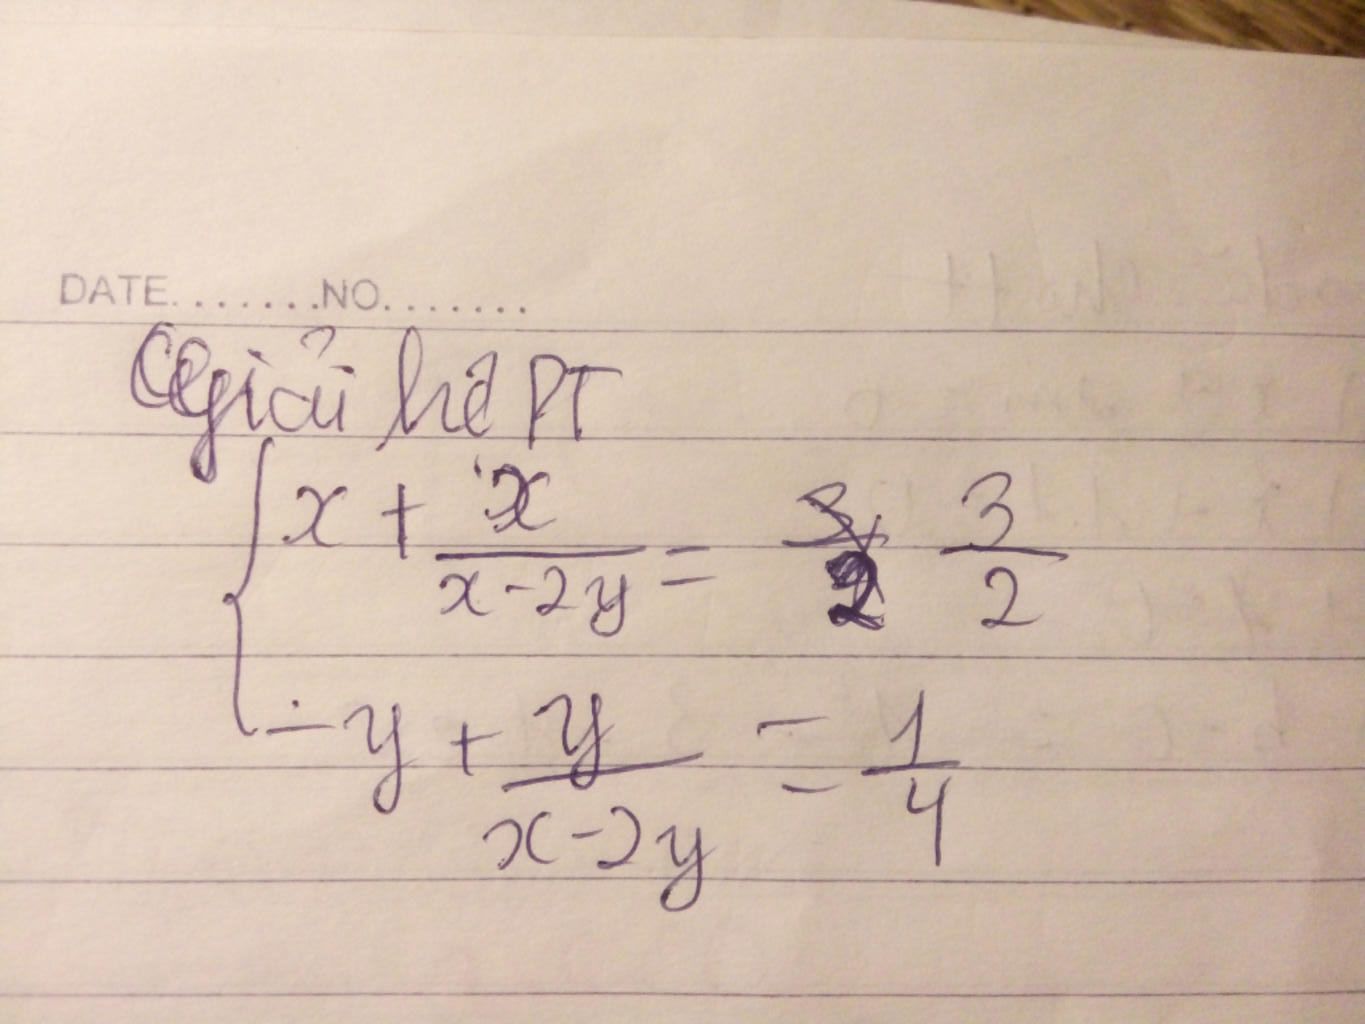 DATE.......NO........
giải hệ PT
x + x/(x-2y) = 3/2
-y + y/(x-2y) = 1/4